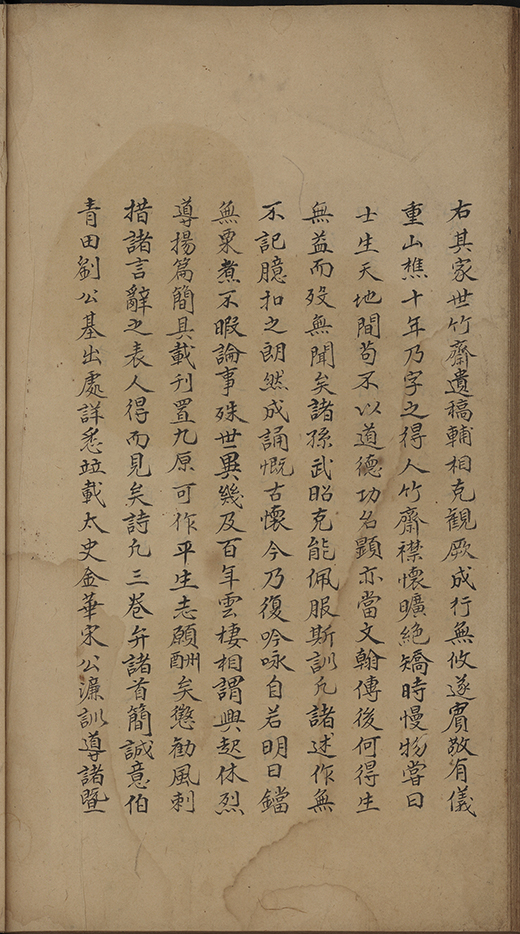 右其家世竹齋遺稿輔相克觀厥成行無攸遂賓敬有儀
重山樵十年乃字之得人竹齋襟懷曠絕矯時慢物嘗曰
士生天地間苟不以道德功名顯亦當文翰傳後何得生
無益而歿無聞矣諸孫武昭克能佩服斯訓凢諸述作無
不記臆扣之朗然成誦慨古懷今乃復吟咏自若明日鐺
無粟煮不暇論事殊世異幾及百年雲棲相謂興起休烈
導揚篇簡具載刊置九原可作平生志願酬矣懲勸風刺
措諸言辭之表人得而見矣詩凢三卷弁諸首簡誠意伯
青田劉公基出處詳悉竝載太史金華宋公濂訓導諸暨